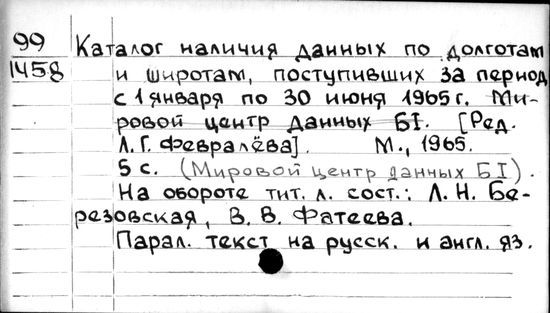 99
1458
Каталог наличия данных по долготам
и широтам, поступивших за период
с 1 января по 30 июня 1965 г. Ми-
ровой центр данных БI. [Ред.
Л. Г. Февралёва]. М., 1965.
5 с. (Мировой центр данных БI).
На обороте тит. л. сост.: Л. Н. Бе-
резовская, В. В. Фатеева.
Парал. текст на русск. и англ. яз.